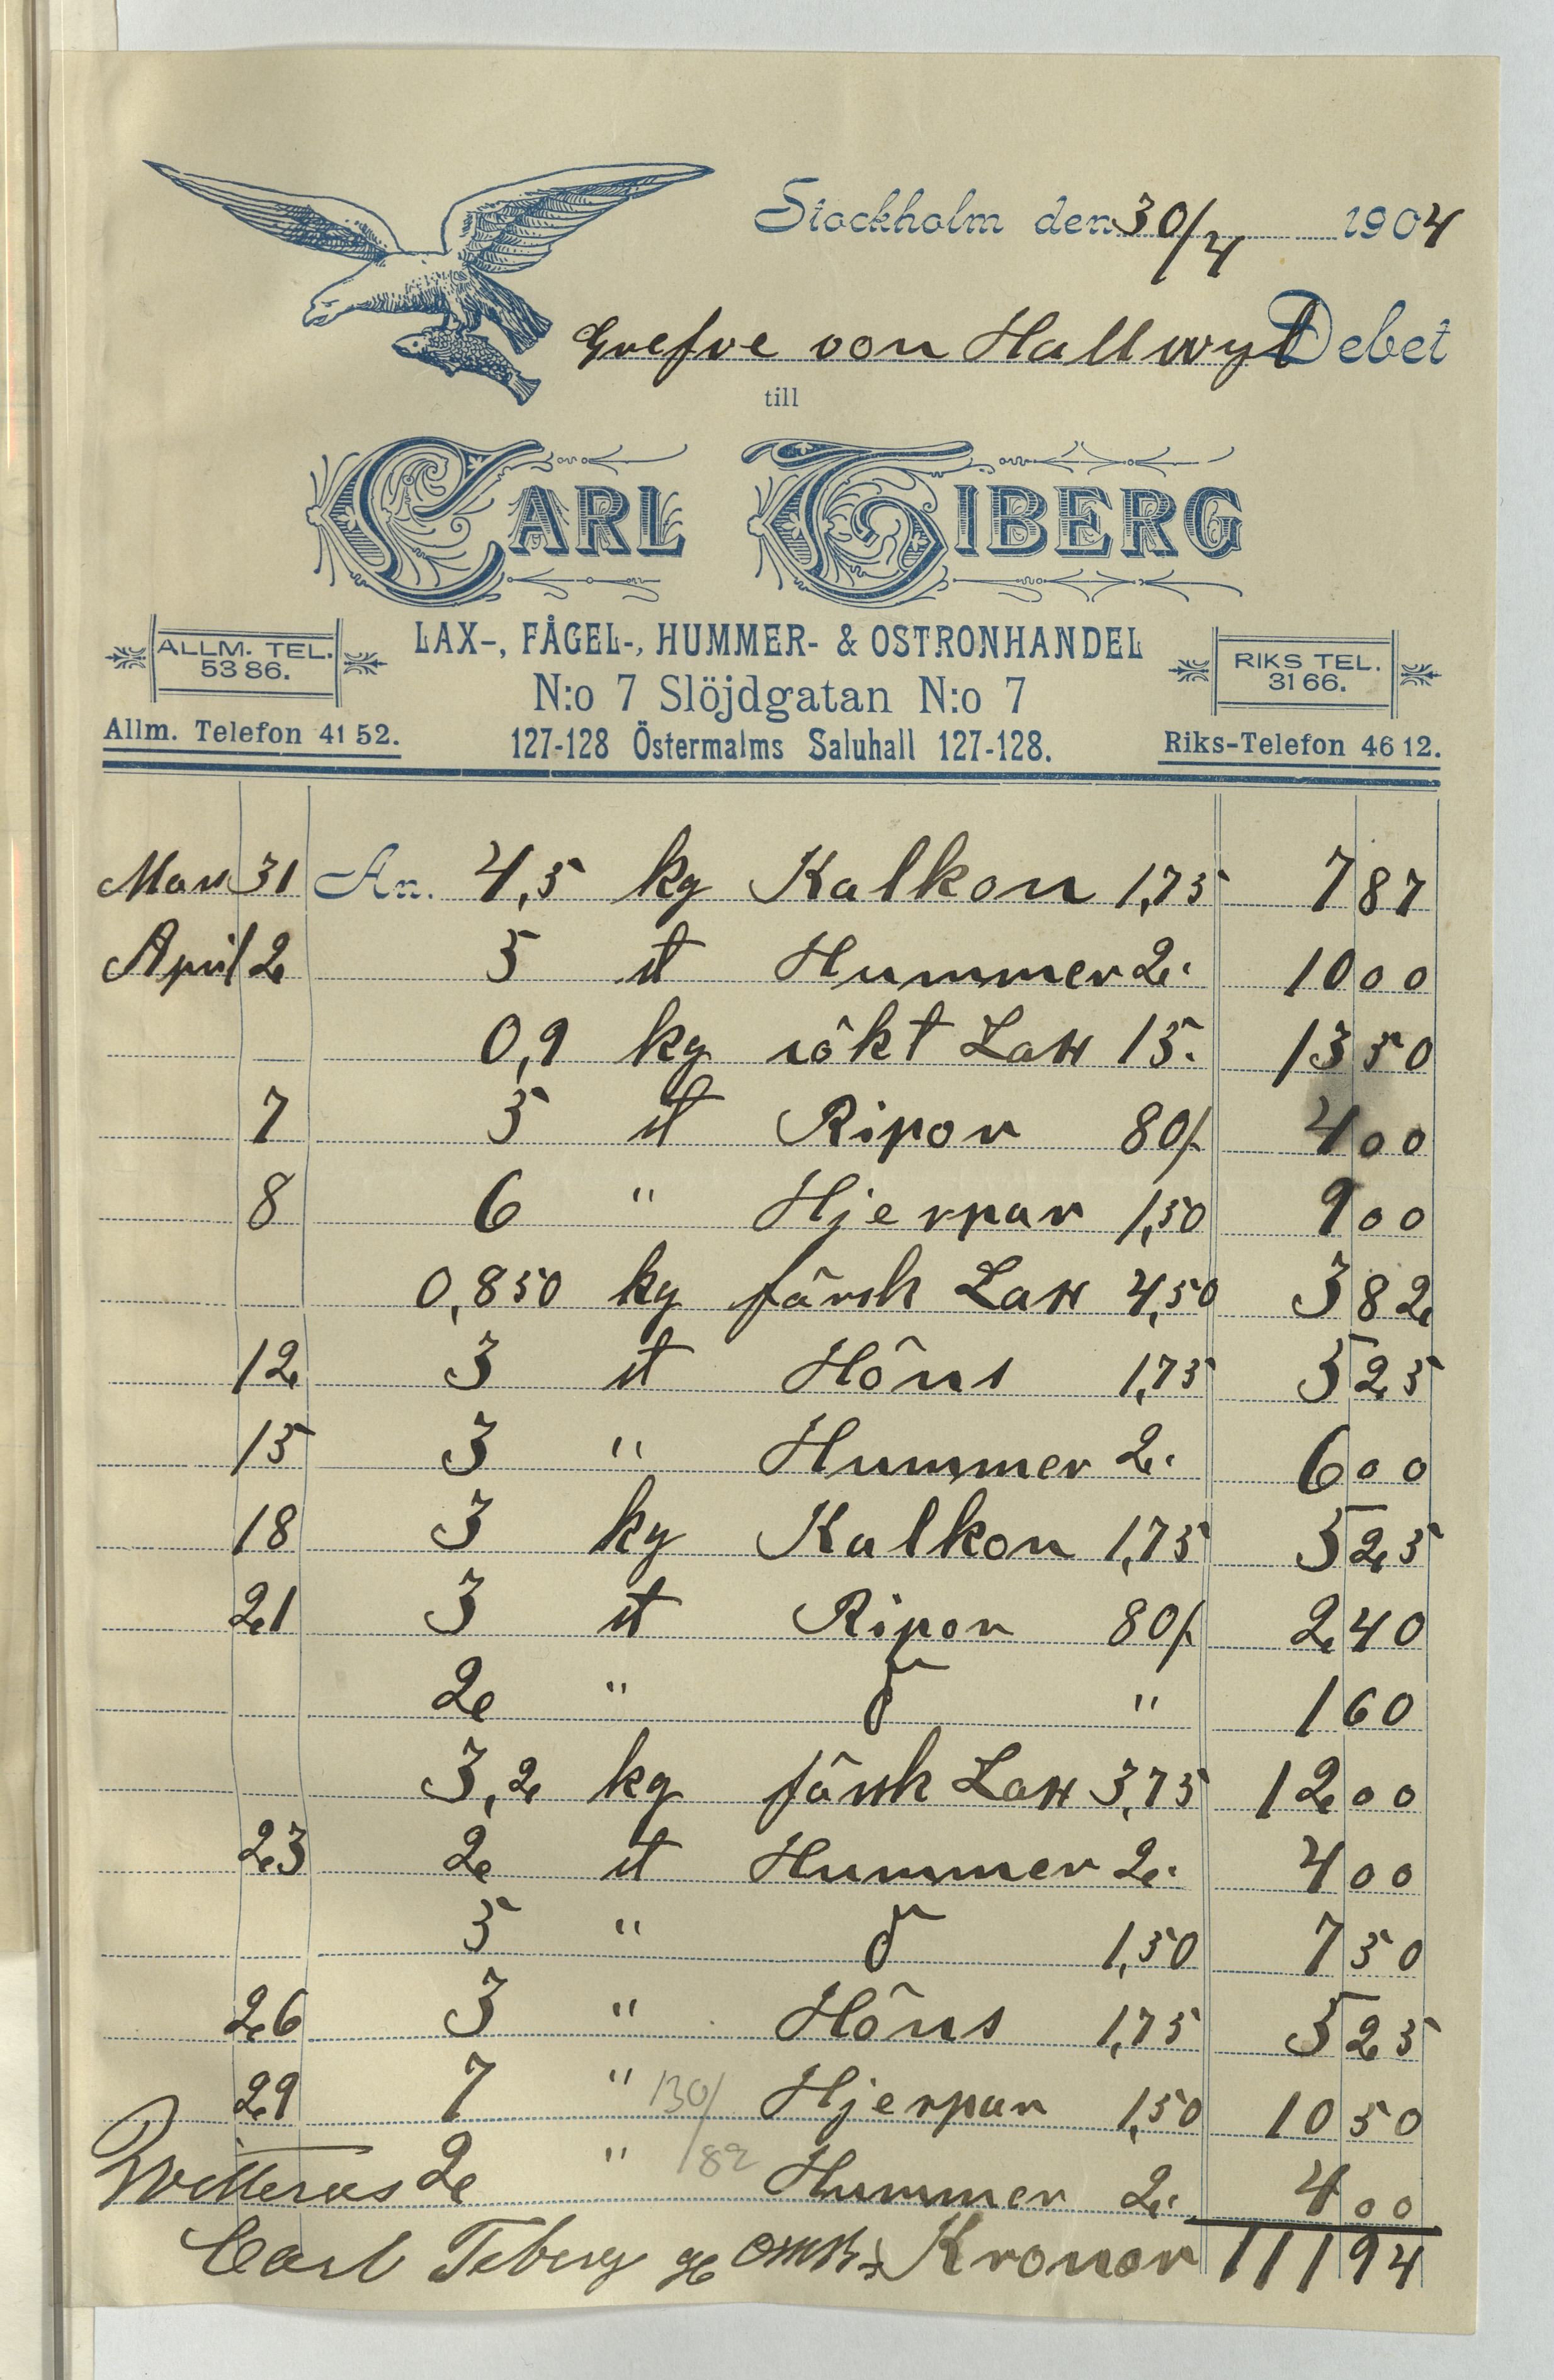 Stockholm den 30/4 1904
Grefve von Hallwyl Debet
till
CARL TIBERG
LAX-, FÅGEL-, HUMMER- & OSTRONHANDEL
ALLM. TEL. 53 86.
RIKS TEL. 31 66.
N:o 7 Slöjdgatan N:o 7
Allm. Telefon 41 52.
127-128 Östermalms Saluhall 127-128.
Riks-Telefon 46 12.
Mars 31 An. 4,5 kg Kalkon 1,75 7 87
April 2 5 st Hummer 2. 10 00
0,9 kg rökt Lax 15. 13 50
7 5 st Ripor 80/. 4 00
8 6 " Hjerpar 1,50 9 00
0,850 kg färsk Lax 4,50 3 82
12 3 st Höns 1,75 5 25
15 3 " Hummer 2. 6 00
18 3 kg Kalkon 1,75 5 25
21 3 st Ripor 80/. 2 40
2 " d " 1 60
3,2 kg färsk Lax 3,75 12 00
23 2 st Hummer 2. 4 00
5 " d 1,50 7 50
26 3 " Höns 1,75 5 25
29 7 " 130/ Hjerpar 1,50 10 50
Qvitteras 2 " 182 Hummer 2. 4 00
Carl Tiberg Kronor 111 94